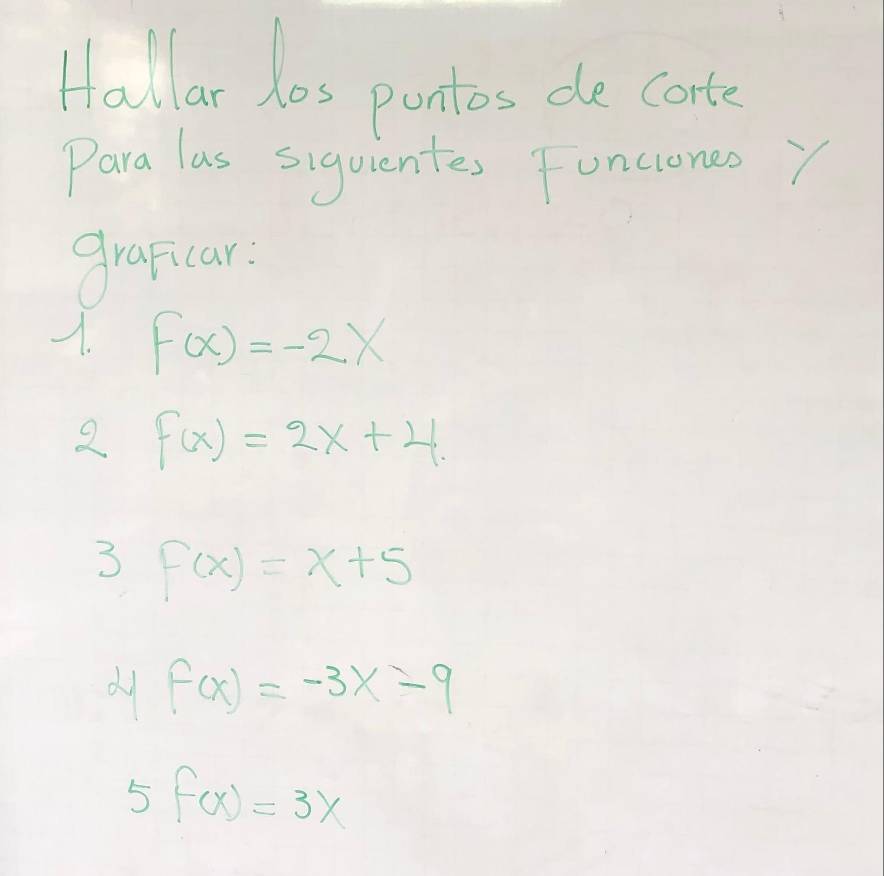 Hallar los puntos de corte
Para las siguientes Funciones Y
graficar:
1. F(x) = -2X
2 f(x) = 2x + 4.
3 F(x) = x+5
4 f(x) = -3X - 9
5 f(x) = 3X